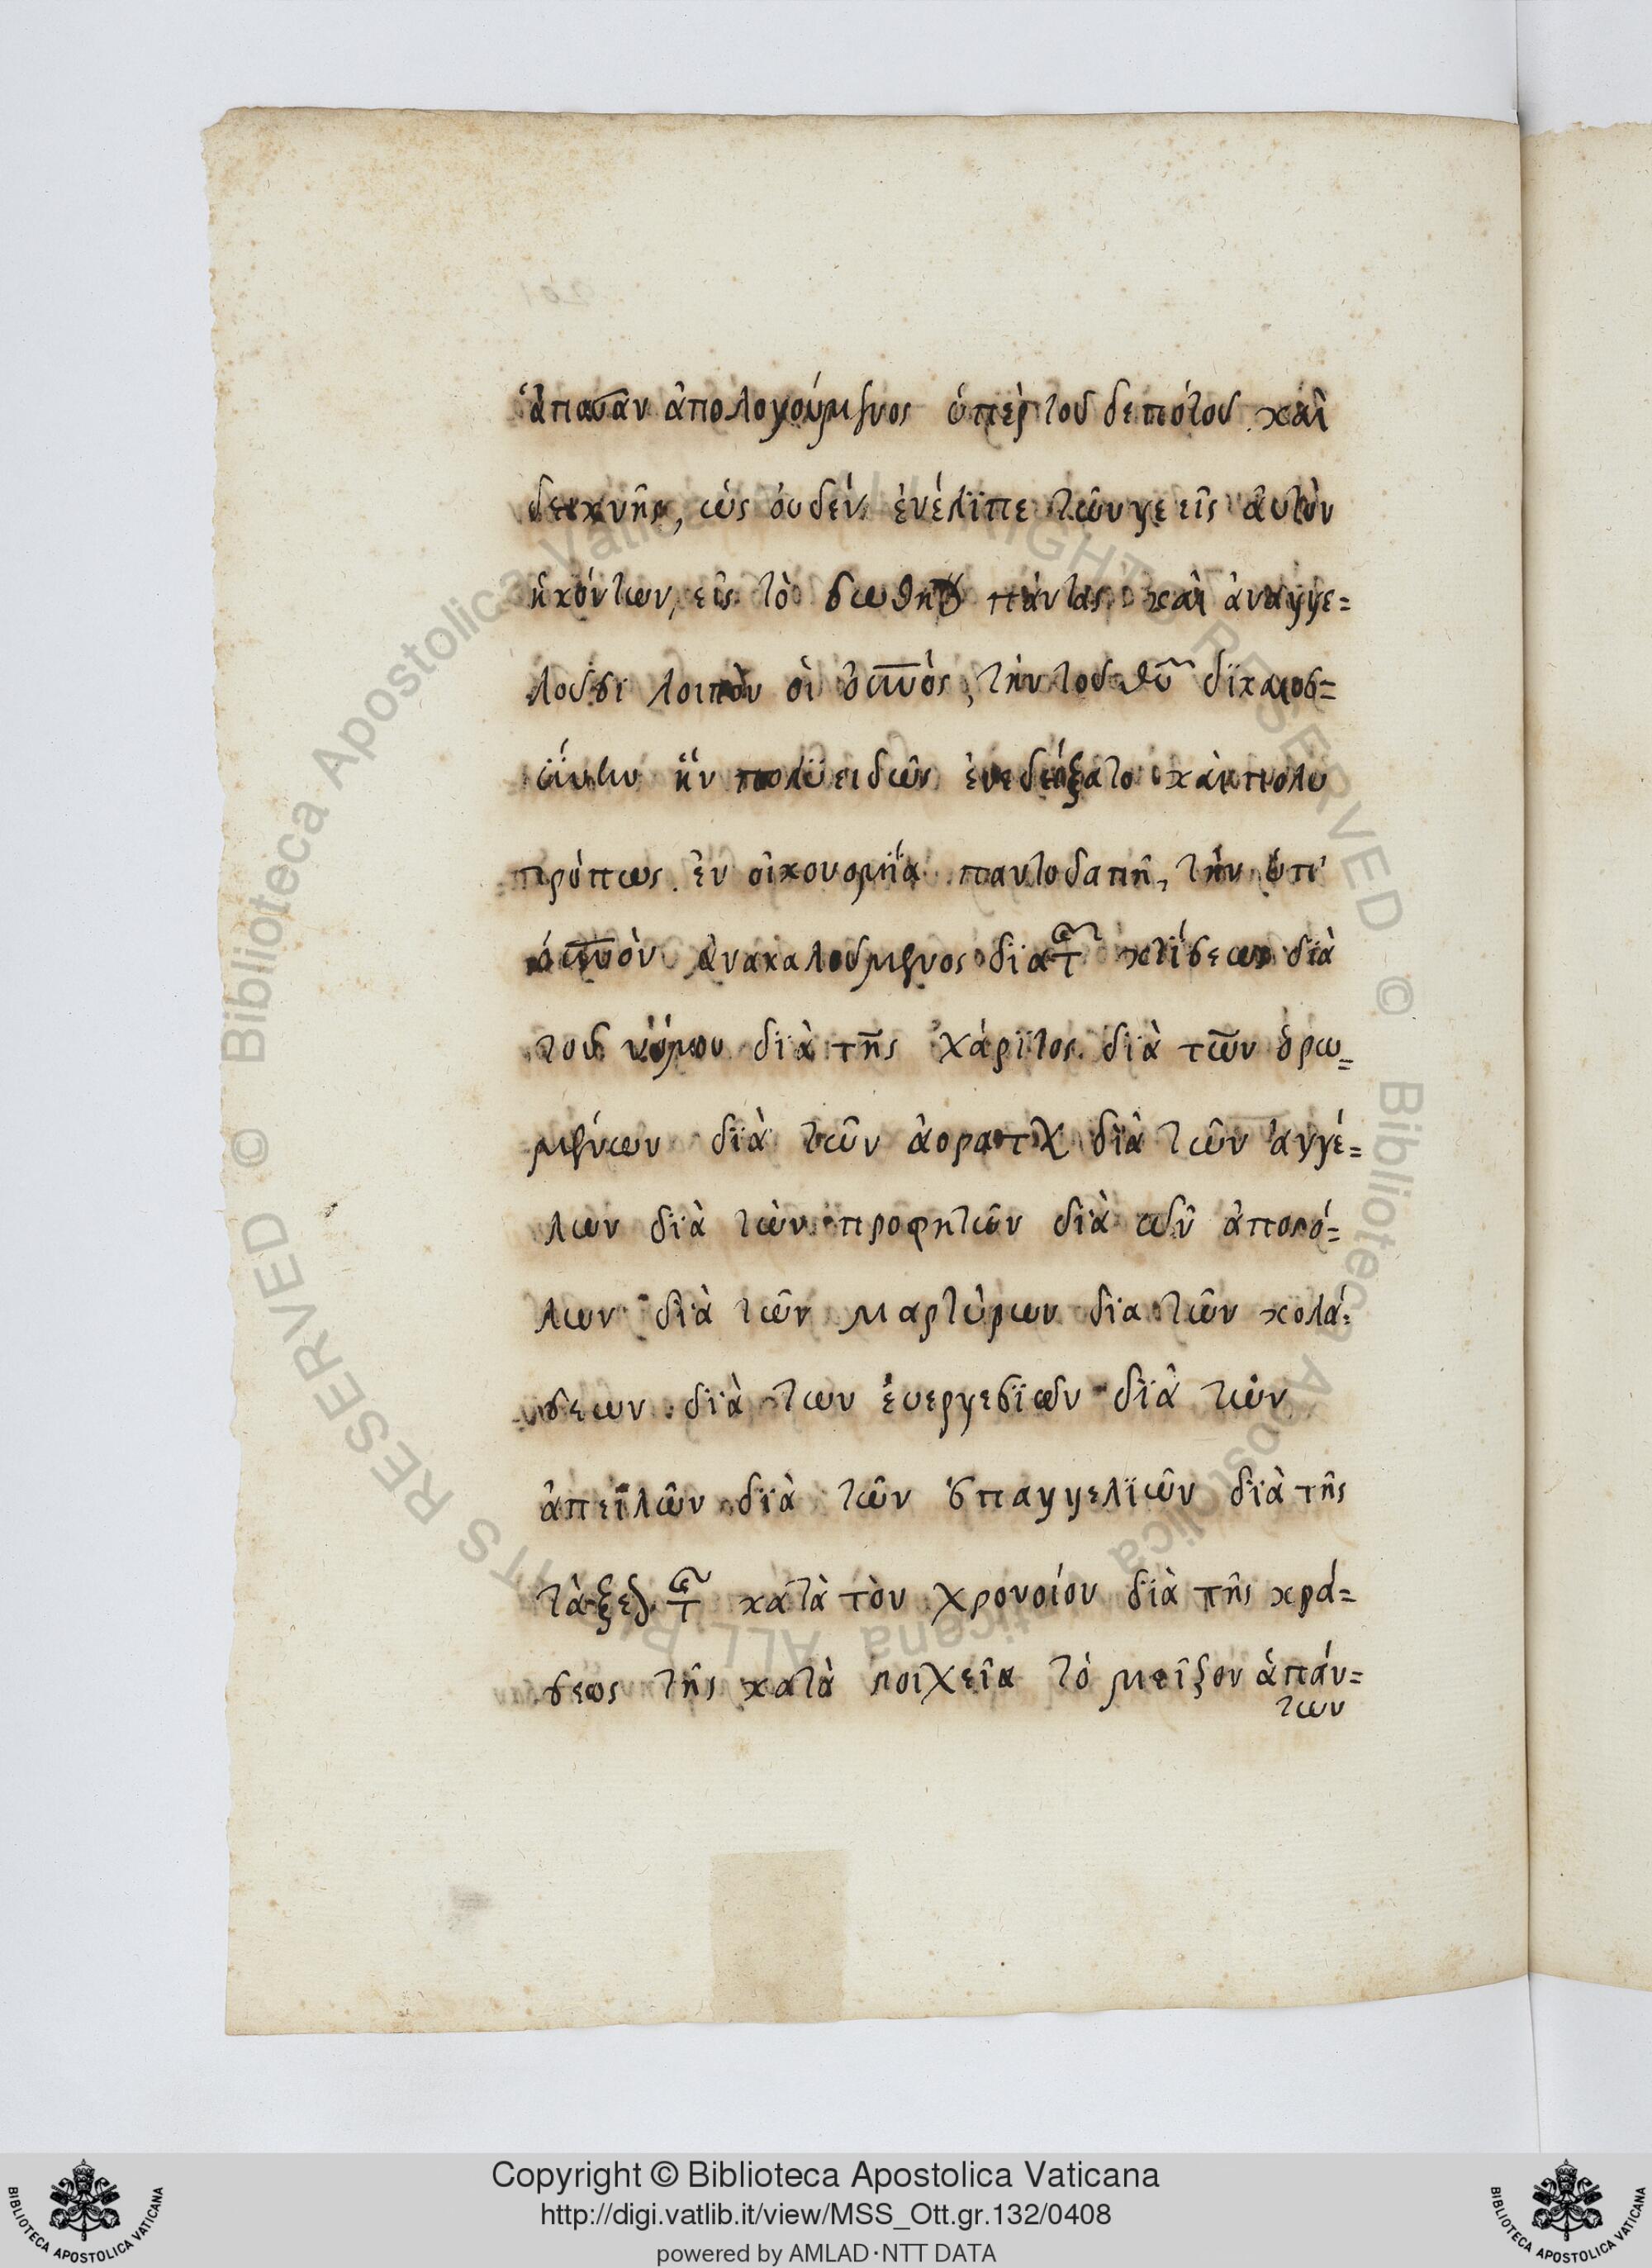 ἅπασαν ἀπολογούμενος ὑπὲρ τοῦ δεπότου καὶ
δεικνῆς, ὡς ουδὲν ἐνέλϊπε τῶνγε εἰς αὐτὸν
ἡκόντων, εἰς τὸ σωθῆναι πάντας καὶ ἀναγγε=
λοῦσι λοιπὸν οἱ οὐνὸς, τὴν τοῦ θυ δϊκαιοσ=
ύνην ἣν πολϋειδῶς ἐνεδείξατο κὰν πολυ
πρόπως. ἐν οἰκονομίᾳ παντοδαπῆ, τὴν ὑπ'
οὐνὸν ἀνακαλούμενος δϊα τῆς κτίσεως δϊὰ
τοῦ νόμου δϊὰ τῆς χάρϊτος δϊὰ τῶν ὁρω=
μένων δϊὰ τῶν ἀοράτων δϊὰ τῶν ἀγγέ=
λων δϊὰ τῶν προφητῶν δϊὰ τῶν ἀποστό=
λων δϊὰ τῶν μαρτύρων δϊα τῶν κολά=
σεων δϊὰ των ἐυεργεσϊῶν δϊὰ τῶν
ἀπειλῶν δϊὰ τῶν ὑπαγγελϊῶν δϊὰ τῆς
τάξεως τῆς κατὰ τὸν χρονοίου δϊὰ τῆς κρά=
σεως τῆς κατὰ στοιχεῖα τὸ μεῖζον ἁπάν=
των
Copyright © Biblioteca Apostolica Vaticana
http://digi.vatlib.it/view/MSS_Ott.gr.132/0408
powered by AMLAD·NTT DATA
BIBLIOTECA APOSTOLICA VATICANA
BIBLIOTECA APOSTOLICA VATICANA
© Biblioteca Apostolica Vaticana ALL RIGHTS RESERVED © Biblioteca Apostolica Vaticana ALL RIGHTS RESERVED